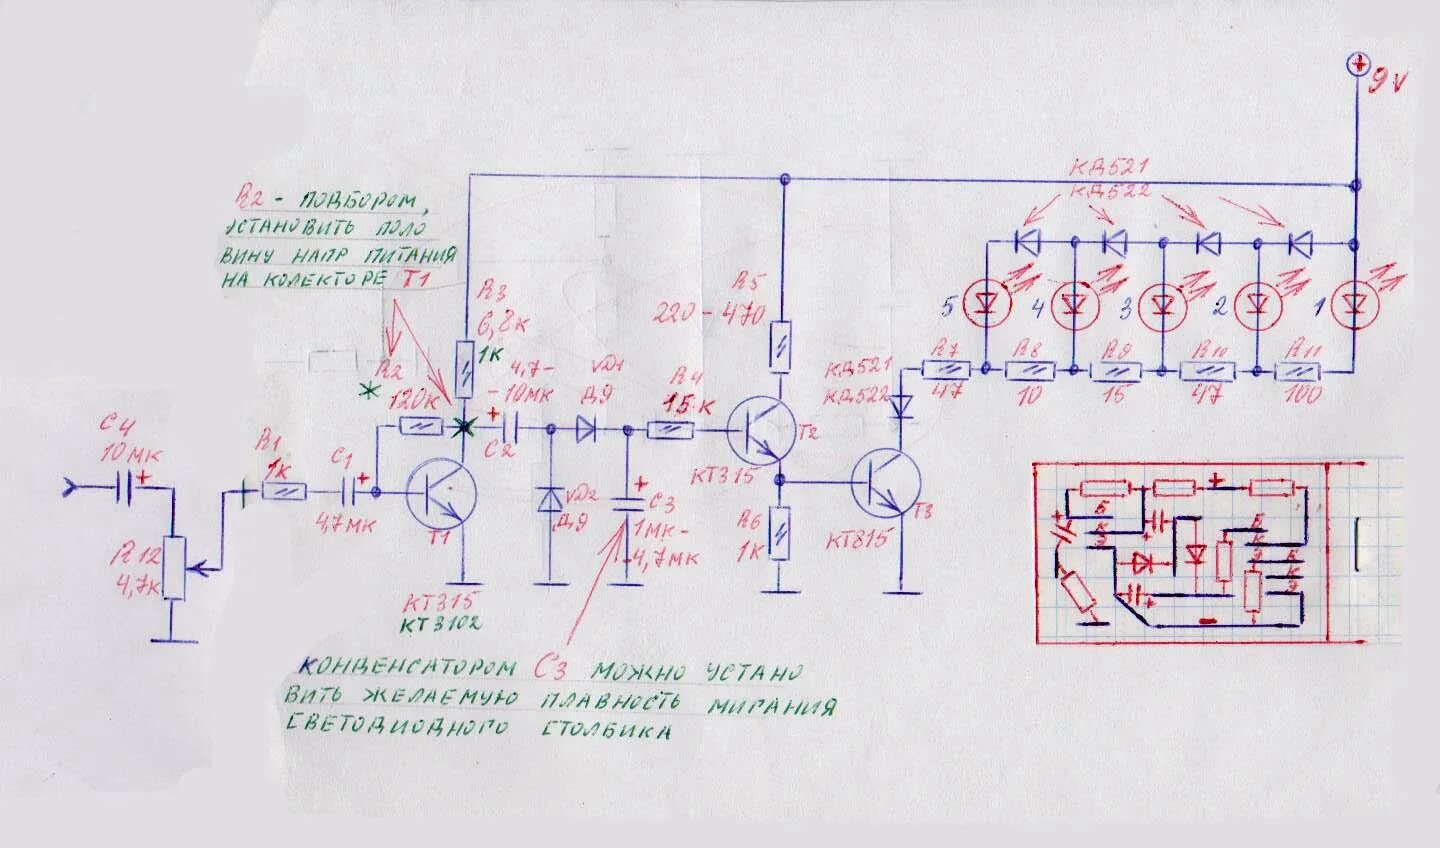 R2 - ПОДБОРОМ,
УСТАНОВИТЬ ПОЛО
ВИНУ НАПР ПИТАНИЯ
НА КОЛЕКТОРЕ Т1
9 V
КД521
КД522
R3
6,8к
1к
R2
* 120к
4,7-
-10мк
+
C2
VD1
Д9
R4
1.5 к
R5
220 - 470
КД521
КД522
5
4
3
2
1
R7
47
R8
10
R9
15
R10
47
R11
100
C4
10мк
+
R1
1к
C1
+
4,7мк
R12
4,7к
T1
КТ315
КТ3102
VD2
Д9
+
C3
1мк-
-4,7мк
T2
КТ315
R6
1к
T3
КТ815
+
Б
К
Э
+
+
+
Б
К
Э
Б
К
Э
-
КОНДЕНСАТОРОМ C3 МОЖНО УСТАНО
ВИТЬ ЖЕЛАЕМУЮ ПЛАВНОСТЬ МИГАНИЯ
СВЕТОДИОДНОГО СТОЛБИКА